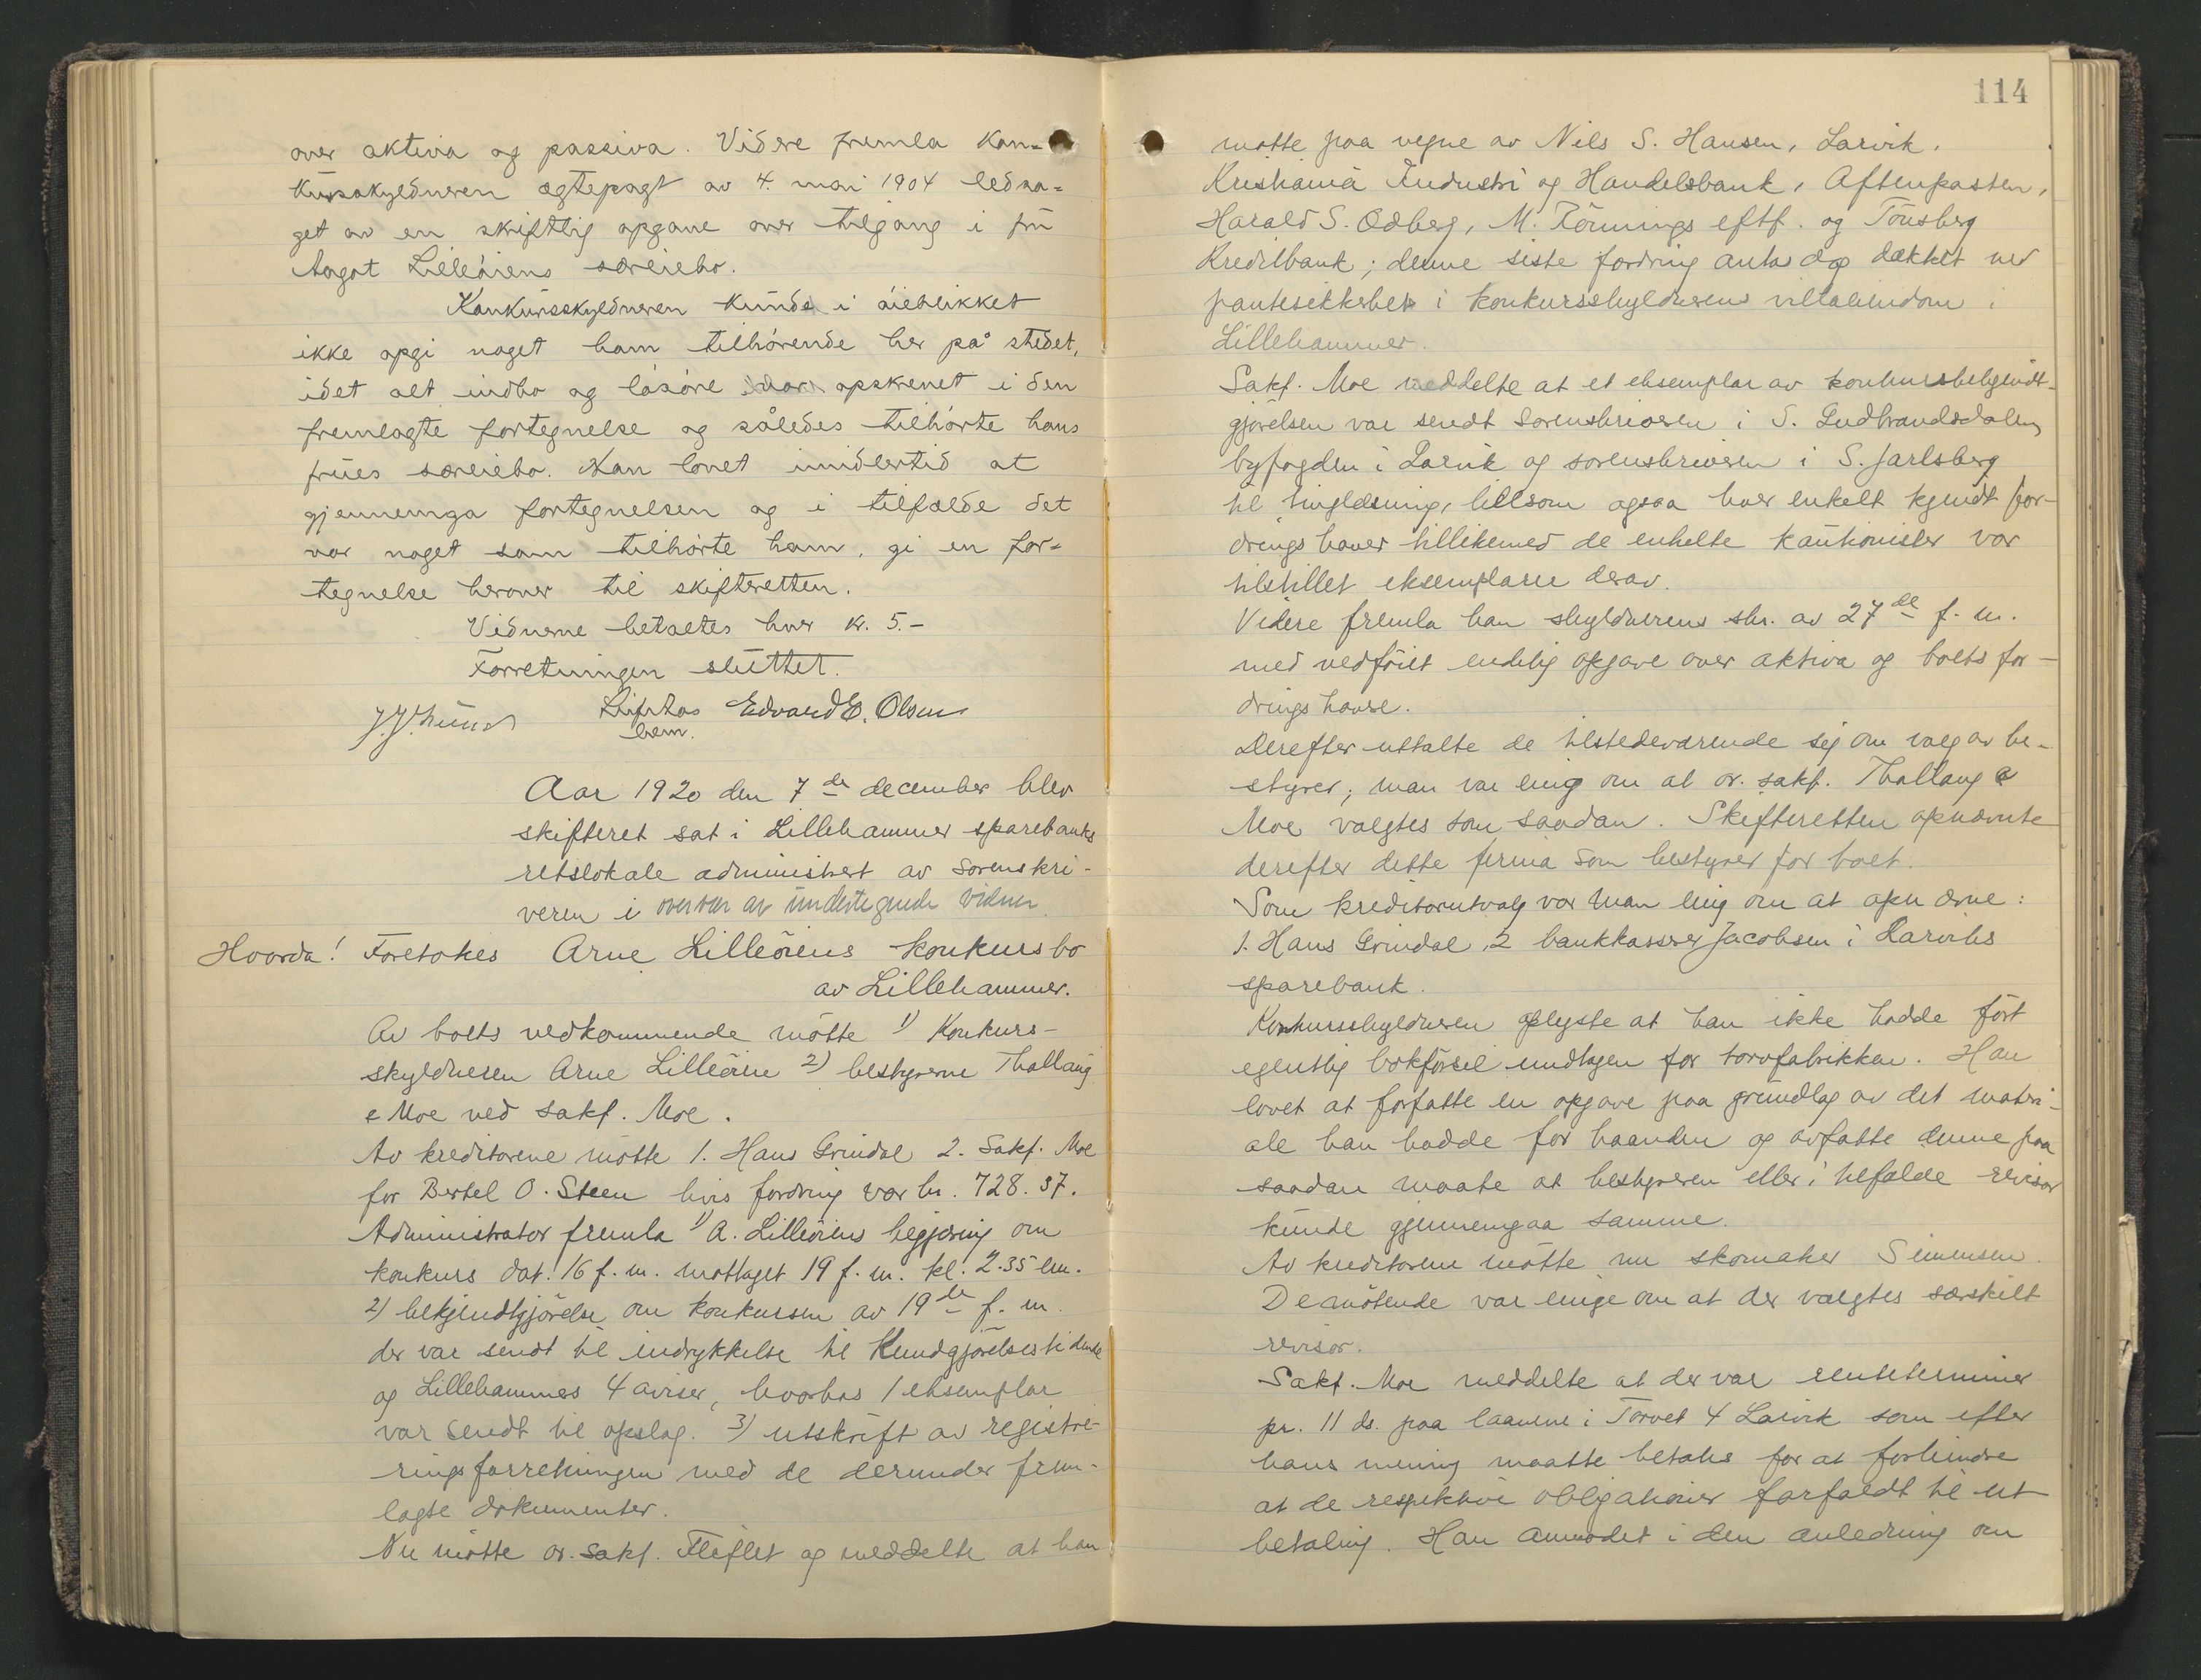 over aktiva og passiva. Videre fremla kon-
kursskyldneren ægtepagt av 4. mai 1904 ledsa-
get av en skriftlig opgave over tilgang i frú
Aagot Lilleóiens særeiebo.
Konkursskyldneren kunde i óieblikket
ikke opgi noget ham tilhórende her på stedet,
idet alt indbo og lósóre var opskrevet i den
fremlagte fortegnelse og således tilhórte hans
frúes særeiebo. Han lovet imidlertid at
gjennemga fortegnelsen og i tilfælde det
var noget som tilhórte ham, gi en for-
tegnelse herover til skifteretten.
Vidnerne betaltes hver kr. 5.-
Forretningen slúttet.
Edvard E. Olsen
Aar 1920 den 7de december blev
skifteret sat i Lillehammer sparebanks
retslokale administrert av sorenskri-
veren i overvær av undertegnede vidner
Hvorda! Foretokes Arne Lilleöiens konkursbo
av Lillehammer.
Av boets vedkommende mötte 1) Konkurs-
skyldneren Arne Lilleöien 2) bestyrerne Thallaug
& Moe ved sakf. Moe.
Av kreditorene mötte 1. Hans Grindal 2. Sakf. Moe
for Bertel O. Steen hvis fordring var kr. 728.37.
Administrator fremla 1) A. Lilleöiens begjæring om
konkurs dat. 16 f. m. mottaget 19 f. m. kl. 2.35 em.
2) bekjendtgjörelse om konkursen av 19de f. m.
der var sendt til indrykkelse til Kundgjörelsestidende
og Lillehammers 4 aviser, hvorhos 1 eksemplar
var sendt til opslag. 3) utskrift av registre-
ringsforretningen med de derunder frem-
lagte dokumenter.
Nu mötte or. sakf. Fleflet og meddelte at han
114
mötte paa vegne av Nils S. Hansen, Larvik,
Kristiania Industri og Handelsbank, Aftenposten,
Harald S. Ödberg, M. Rönnings eftf. og Tönsberg
Kreditbank; denne siste fordring antas dog dækket ved
pantesikkerhet i konkursskyldnerens villaeiendom i
Lillehammer.
Sakf. Moe meddelte at et eksemplar av konkursbekjendt-
gjörelsen var sendt sorenskriveren i S. Gudbrandsdalen,
byfogden i Larvik og sorenskriveren i S. Jarlsberg
til tinglæsning, likesom ogsaa hver enkelt kjendt for-
dringshaver tillikemed de enkelte kautionister var
tilstillet eksemplarer derav.
Videre fremla han skyldnerens skr. av 27de f. m.
med vedföiet endelig opgave over aktiva og boets for-
dringshavere.
Derefter uttalte de tilstedeværende sig om valg av be-
styrer; man var enig om at or. sakf. Thallaug &
Moe valgtes som saadan. Skifteretten opnævnte
derefter dette firma som bestyrer for boet.
Som kreditorutvalg var man enig om at opnævne:
1. Hans Grindal, 2 bankkasserer Jacobsen i Larviks
sparebank.
Konkursskyldneren oplyste at han ikke hadde fört
egentlig bokförsel undtagen for torvfabrikken. Han
lovet at forfatte en opgave paa grundlag av det materi-
ale han hadde for haanden og avfatte denne paa
saadan maate at bestyreren eller i tilfælde revisor
kunde gjennemgaa samme.
Av kreditorene mötte nu skomaker Simensen.
De mötende var enige om at der valgtes særskilt
revisor.
Sakf. Moe meddelte at der var rentetermine
pr. 11 ds. paa laanene i Torvet 4 Larvik som efter
hans mening maatte betales for at forhindre
at de respektive obligationer forfaldt til ut-
betaling. Han anmodet i den anledning om